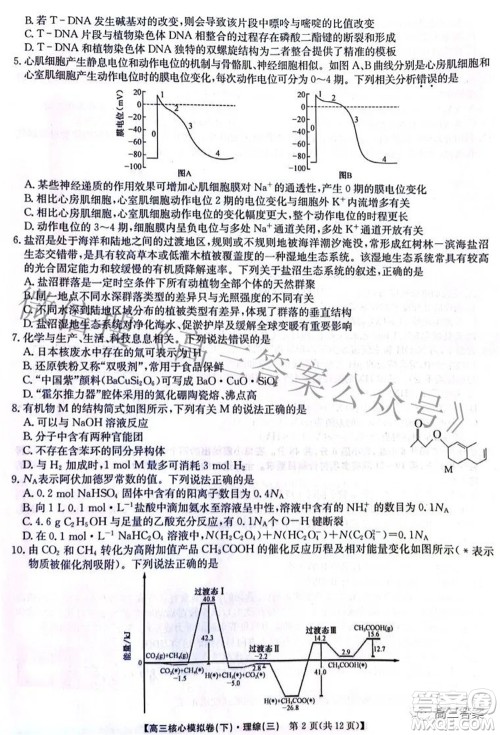 B. 若 T－DNA 发生碱基对的改变，则该片段中嘌呤与嘧啶的比值改变
C. T－DNA 片段与植物染色体 DNA 片段的整合过程存在磷酸二酯键的断裂和形成
D. T－DNA 和植物染色体 DNA 独特的双螺旋结构为二者提供了精准的模板
5. 心肌细胞产生静息电位和动作电位的机制与骨骼肌、神经细胞相似。如图 A、B 曲线分别是心房肌细胞和
心室肌细胞产生动作电位时的膜电位变化，每次动作电位可分为 0～4 期。下列相关分析错误的是
膜电位(mV)
20
0
-20
-40
-60
-80
-100
1
2
3
4
图A
膜电位(mV)
20
0
-20
-40
-60
-80
-100
1
2
3
4
图B
A. 某些神经递质的作用效果可引起心肌细胞膜对 Na⁺ 的通透性，产生 0 期的膜电位变化
B. 相比心房肌细胞，心室肌细胞动作电位 2 期的电位变化与 K⁺ 外流减慢有关
C. 相比心房肌细胞，心室肌细胞动作电位的变化幅度更大，整个动作电位的时程更长
D. 与心肌细胞动作电位 3 期形成有关的主要因素是 K⁺ 通道关闭、Na⁺ 通道开放
6. 盐沼是处于海洋和陆地之间的过渡地区，规则或不规则地被海洋潮汐淹没，常形成红树林－滨海盐沼
生态交错带，是具有较高草本或低灌木植被覆盖度的一种湿地生态系统。该湿地生态系统具有较高
的光合固定能力和较缓慢的有机质降解速率。下列关于盐沼生态系统的叙述，正确的是
A. 盐沼群落是一定时空条件下所有动植物全部个体的天然聚集
B. 同一地点不同水深群落类型的差异只与光照强度有关
C. 不同水深到陆地分布的植被类型差异，体现了群落的垂直结构
D. 盐沼湿地生态系统的碳汇对减缓气候变暖、温室效应等至关重要
7. 化学与生产、生活、科技息息相关。下列说法正确的是
A. 日本核废水中存在的氚可表示为 H
B. 还原铁粉又称“双吸剂”，常用于食品保鲜
C. “中国紫”颜料(BaCuSi₂O₆)可表示为 BaO·CuO·SiO₂
D. “霍尔推力器”腔体采用的氮化硼陶瓷熔、沸点高
8. 有机物 M 的结构简式如图所示，下列有关 M 的说法正确的是
A. 可以与 NaOH 溶液反应
B. 分子中含有两种官能团
C. 不存在含苯环的同分异构体
D. 与 H₂ 加成时，1 mol M 最多可消耗 3 mol H₂
O
O
M
9. Nᴀ 表示阿伏加德罗常数的值。下列说法正确的是
A. 0.2 mol NaHSO₄ 固体中含有的阳离子数目为 0.4Nᴀ
B. 向 1 L 0.1 mol·L⁻¹ 盐酸中通氨气至中性，所得溶液中含有的 NH₄⁺ 数目为 0.1Nᴀ
C. 4.6 g C₂H₅OH 与足量的乙酸充分反应，有 0.1Nᴀ 个 O－H 键断裂
10. 由 CO₂ 和 CH₄ 转化为高附加值产品 CH₃COOH 的催化反应历程及相对能量变化如图所示(* 表示
物质被催化剂吸附)。下列说法正确的是
能量/kJ
0
过渡态Ⅰ
40.8
42.3
过渡态Ⅱ
-2.2
2.9
-26.8
过渡态Ⅲ
14.2
41.0
CH₃COOH(g)
15.6
12.7
【高三核心模拟卷(下)·理综(三) 第 2 页(共 12 页)】